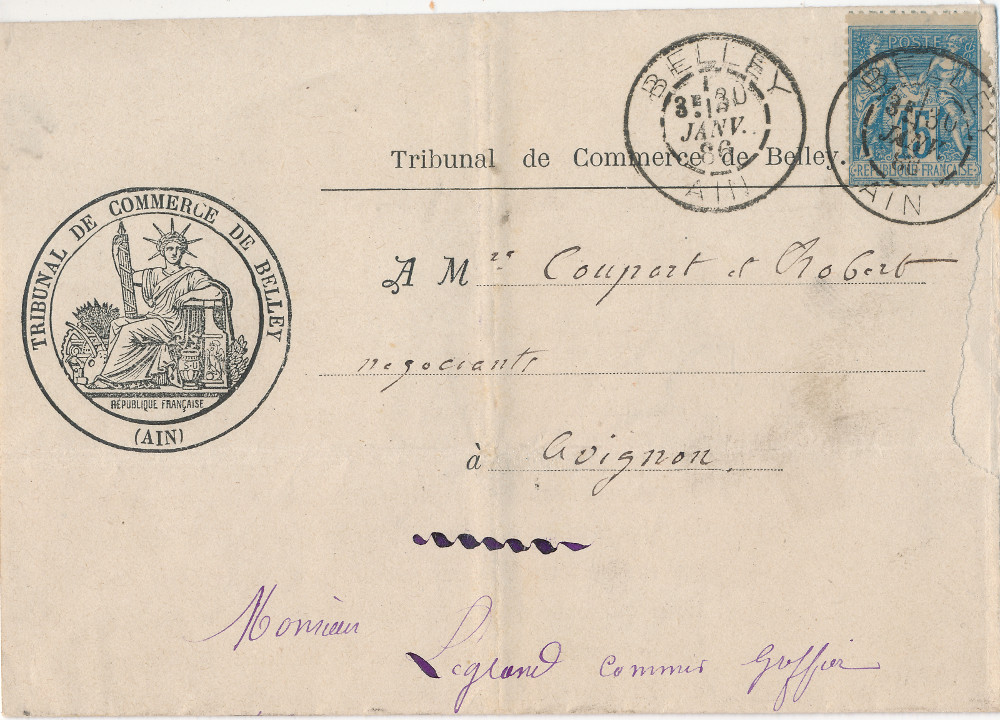 POSTE
15
RÉPUBLIQUE FRANÇAISE
BELLEY
3E 30
JANV.
86
AIN
BELLEY
3E 30
JANV.
86
AIN
Tribunal de Commerce de Belley.
TRIBUNAL DE COMMERCE DE BELLEY
RÉPUBLIQUE FRANÇAISE
(AIN)
A Mrs Coupart et Robert
negociants
à Avignon
Monsieur
Legrand commis Greffier